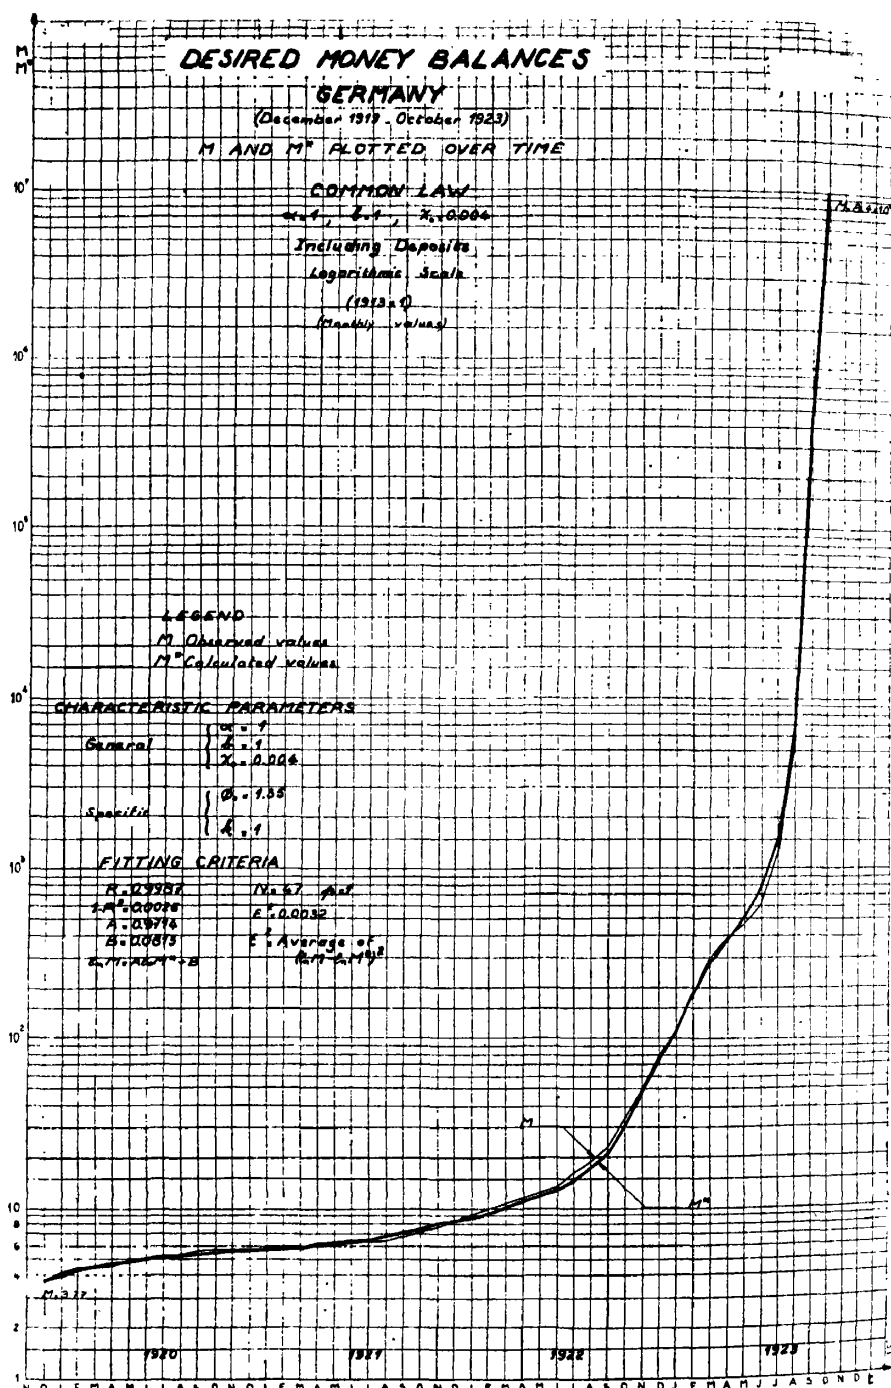 M
M*
DESIRED MONEY BALANCES
GERMANY
(December 1919 - October 1923)
M AND M* PLOTTED OVER TIME
COMMON LAW
α=1 , b=1 , χ₀=0.004
Including Deposits
Logarithmic Scale
(1913=1)
(Monthly values)
10⁷
10⁶
10⁵
10⁴
10³
10²
10
8
6
4
2
1
LEGEND
M Observed values
M* Calculated values
CHARACTERISTIC PARAMETERS
General
α = 1
b = 1
χ₀ = 0.004
Specific
Φ₀ = 1.35
k = 1
FITTING CRITERIA
R = 0.9987 N = 47 p=1
1-R² = 0.0026 E² = 0.0032
A = 0.9714
B = 0.0813 E² = Average of
Ln M = A Ln M* + B (Ln M - Ln M*)²
M
M*
M = 3.77
1920 1921 1922 1923
N D J F M A M J J A S O N D J F M A M J J A S O N D J F M A M J J A S O N D J F M A M J J A S O N D t